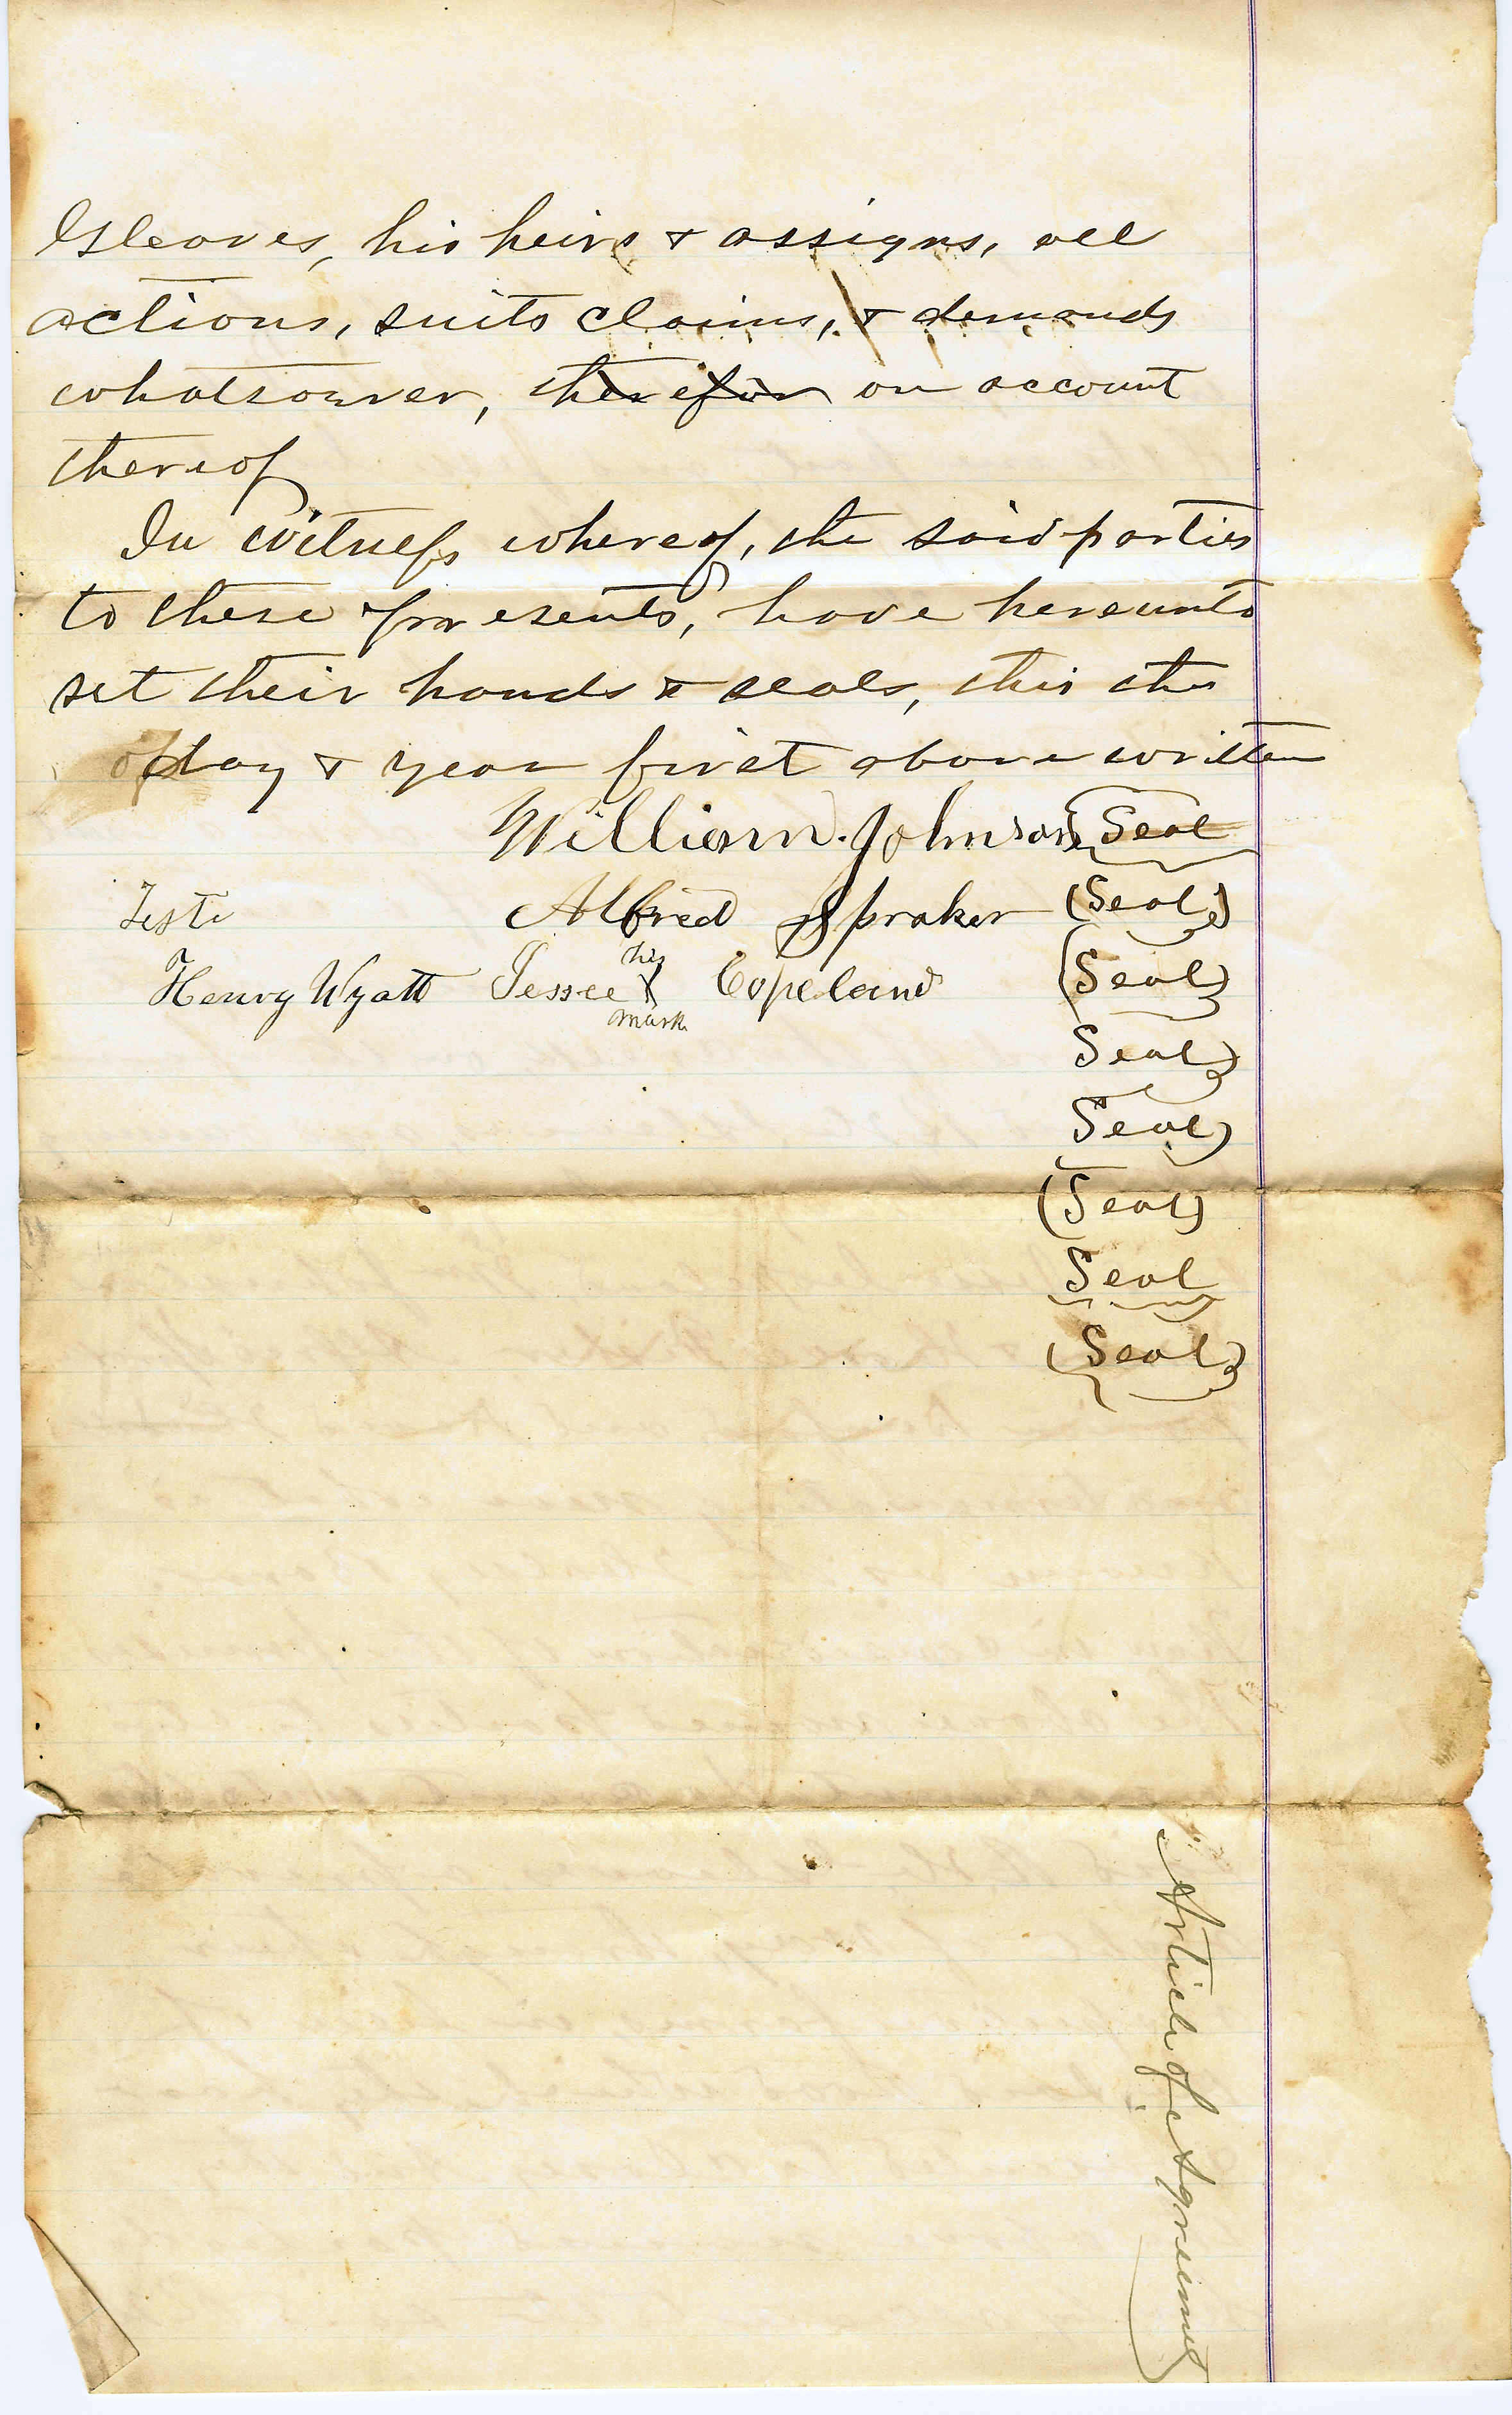 Gleaves, his heirs & assigns, all
actions, suits claims, & demands
whatsoever, therefor on account
thereof
In witness whereof, the said parties
to these presents, have hereunto
set their hands & seals, this the
of day & year first above written
William. Johnson Seal
Teste Alfred Spraker (Seal)
his
Henry Wyatt Jessee X Copeland (Seal)
mark
Seal)
Seal)
(Seal)
Seal
(Seal)
Article of Agreement